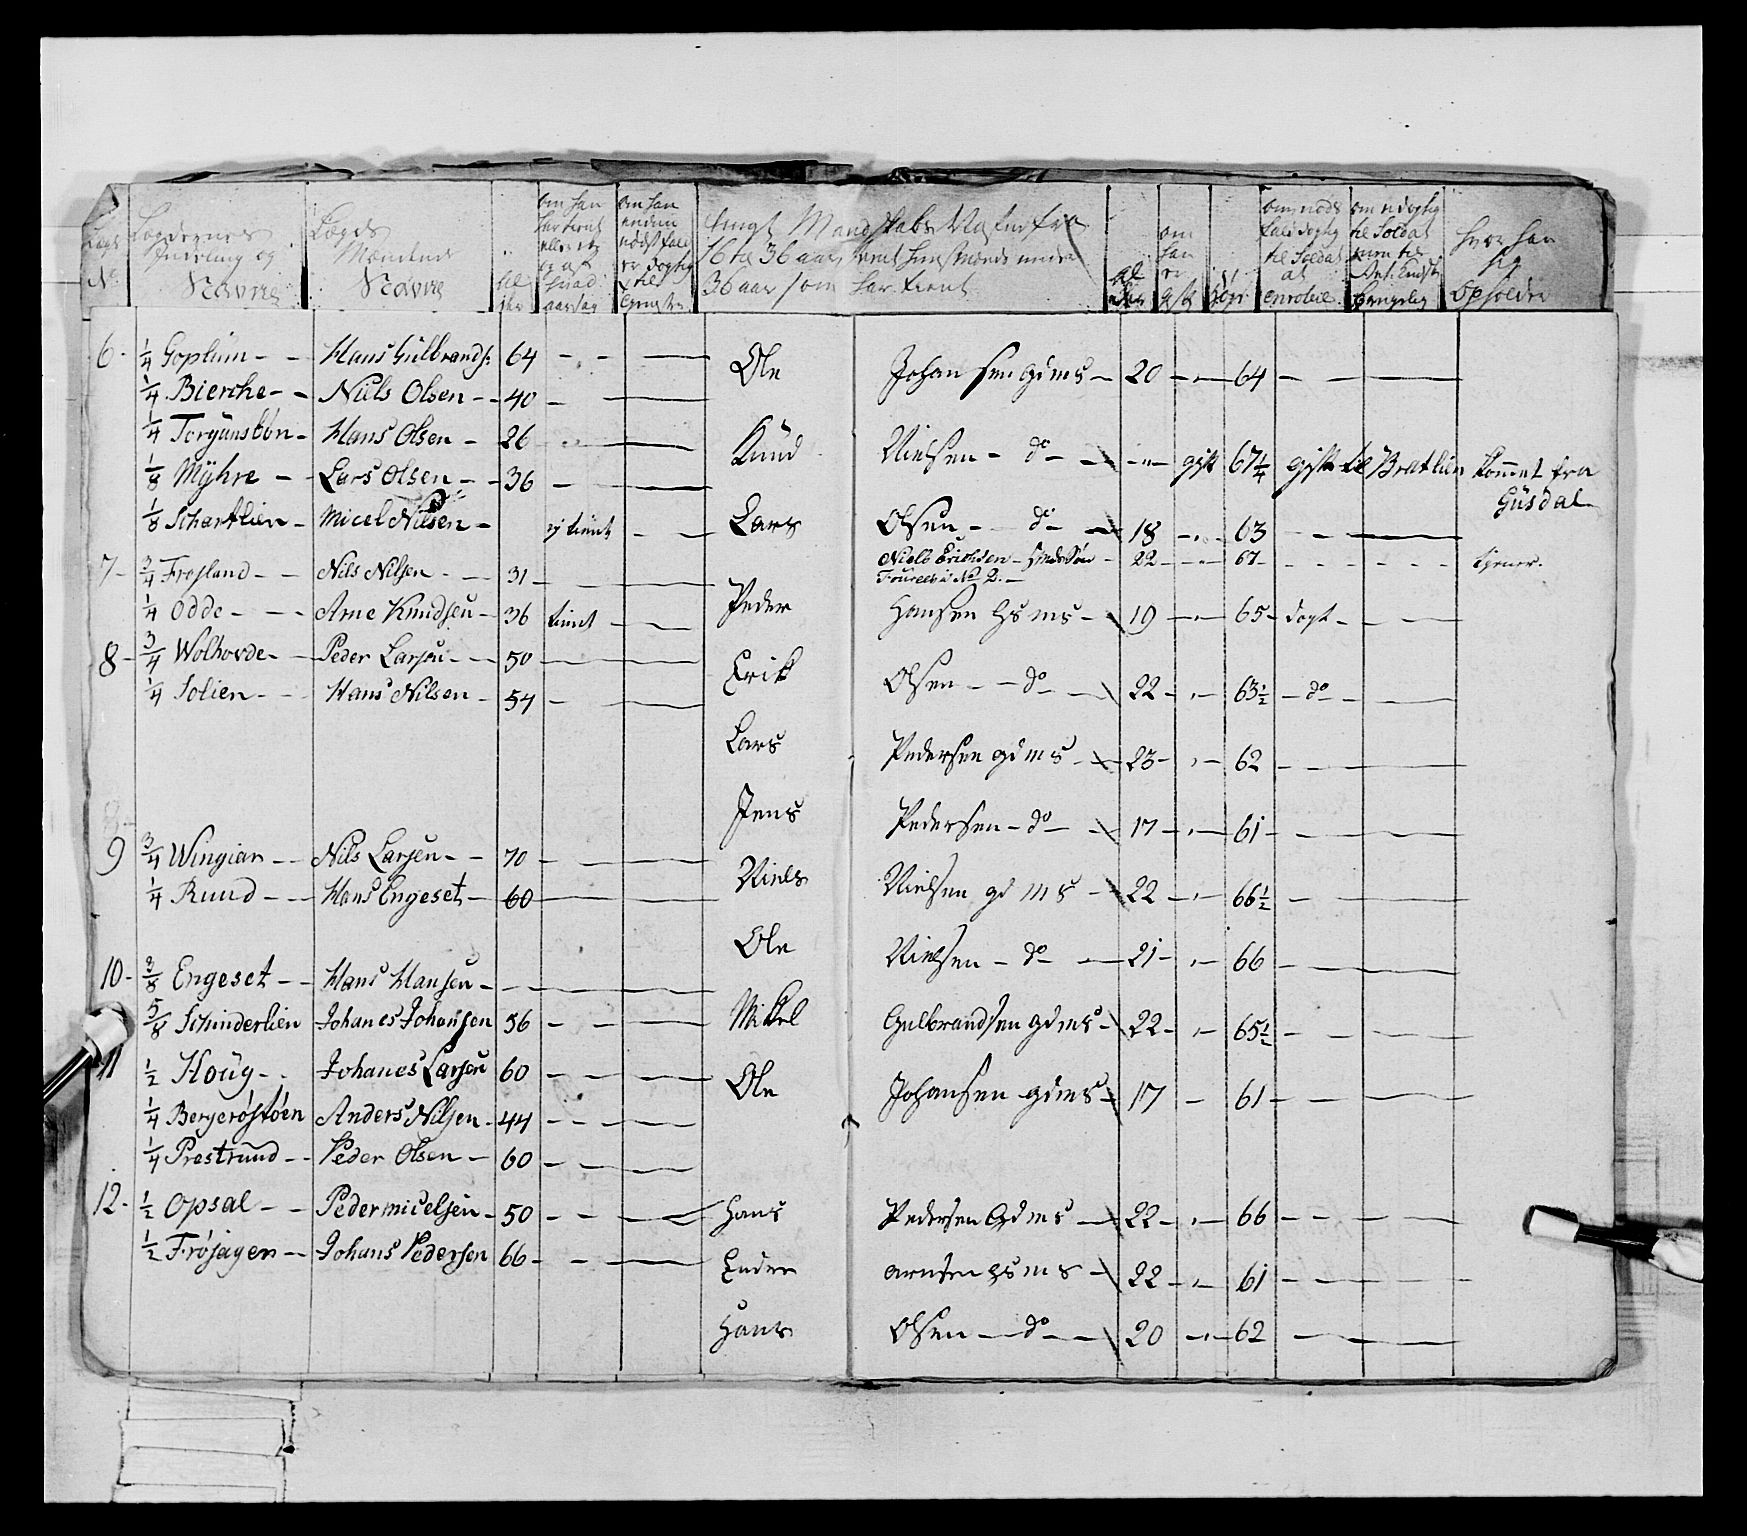 Lægds No | Lægdernes Inndeling og Navne | Lægds Mændenes Navne | al der | om han har tient eller ey og af hvad aarsag | om han endnu i nødsfald er dygtig til tieneste | Ungt Mandskabs Navne fra 16 til 36 aar, samt Huusmænd under 36 aar som har tient | al der | om han er gift | høyde | om i nødsfald dygtig til Soldat at enrolere | om udygtig til Soldat men til | hvor han sig opholder
6 - 1/4 Goplum - - Hans Gulbrands: 64 - - -
Ole Johansen gdms - 20 - - 64 - -
1/4 Bierche - - Niels Olsen - - 40 - -
1/4 Torgunsbøn - Hans Olsen - 26 - -
Knud Nielsen - do - - gift 67 1/4 gift til Bratlien kommet fra Gusdal
1/8 Myhre - - Lars Olsen - - 36 - -
1/8 Schartlien - Micel Nilsen - ej tient - -
Lars Olsen - - do - 18 - - 63 - - -
Niels Erichsen - - 22 - - 67 - - - tiener.
No 2. -
7 - 3/4 Frøsland - - Nils Nilsen - - 31 - - -
1/4 Odde - - - Arne Knudsen - 36 tient - -
Peder Hansen hsms - 19 - - 65 - dygt - - -
8 - 3/4 Wolhovde - - Peder Larsen - - 50 - - -
Erik Olsen - - do - - 22 - - 63 1/2 - do - -
1/4 Solien - - - Hans Nilsen - 54 - - -
Lars Pedersen gdms - 23 - - 62 - - -
Jens Pedersen - do - - 17 - - 61 - - -
9 3/4 Wingiar - - Nils Larsen - - 70 - - -
Niels Nielsen gdms - 22 - - 66 1/2 - -
1/4 Ruud - - - Hans Engeset - 60 - - -
Ole Nielsen - do - - 21 - - 66 - - -
10 - 3/8 Engeset - - Hans Hansen - - - -
5/8 Schinderlien Johanes Johansen 56 - - -
Mikel Gulbrandsen gdms - 22 - - 65 1/2 - - -
11 1/2 Houg - - Johanes Larsen 60 - - -
Ole Johansen gdms - 17 - 61 - - -
1/4 Bergerøstøen Anders Nilsen - 44 - - -
1/4 Prestrund - - Peder Olsen - 60 - - -
12 - 1/2 Opsal - - Peder Micelsen - 50 - - -
Hans Pedersen Gdms - 22 - - 66 - - -
1/2 Frøsagen - - Johans Pedersen 66 - - -
Ender Arnesen hsms - 22 - - 61 - - -
Hans Olsen - do - - 20 - - 62 - -